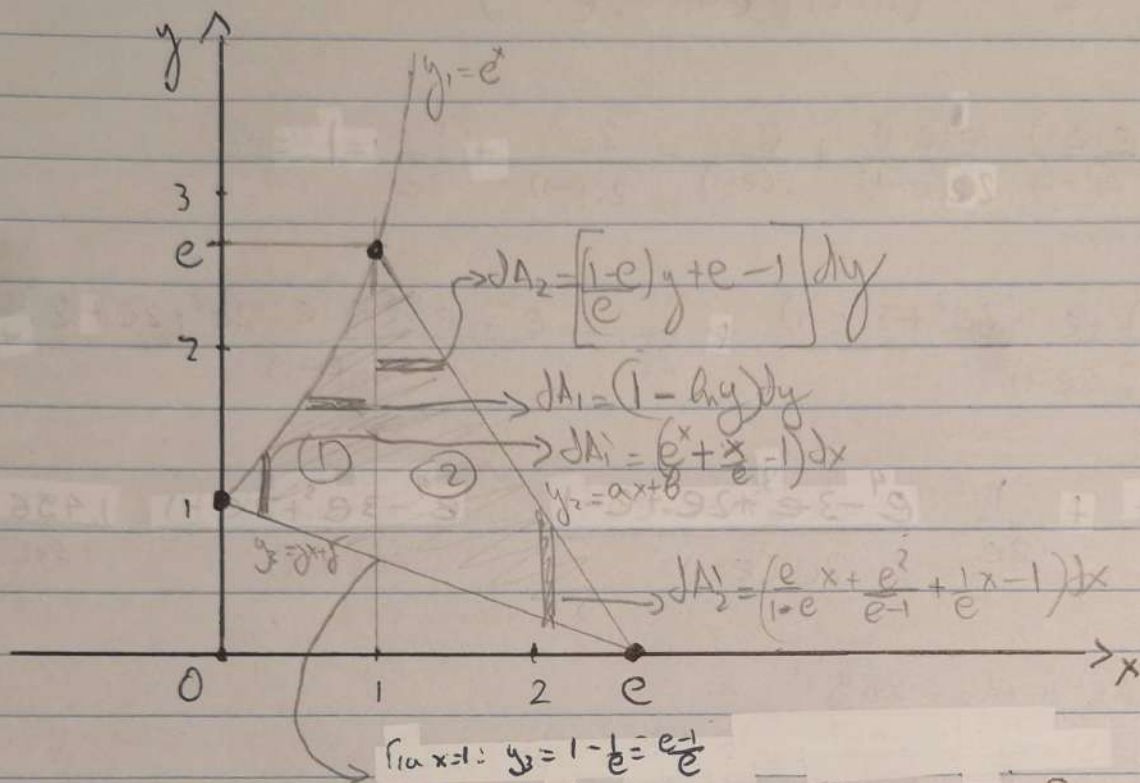 y
y₁ = eˣ
3
e
dA₂ = [(1-e)/e y + e - 1] dy
2
dA₁ = (1 - lny)dy
dA₁' = (eˣ + x/e - 1)dx
① ②
y₂ = αx+β
1
y₃ = γx+δ
dA₂' = (e/(1-e) x + e²/(e-1) + 1/e x - 1)dx
0 1 2 e x
Για x=1: y₃ = 1 - 1/e = (e-1)/e